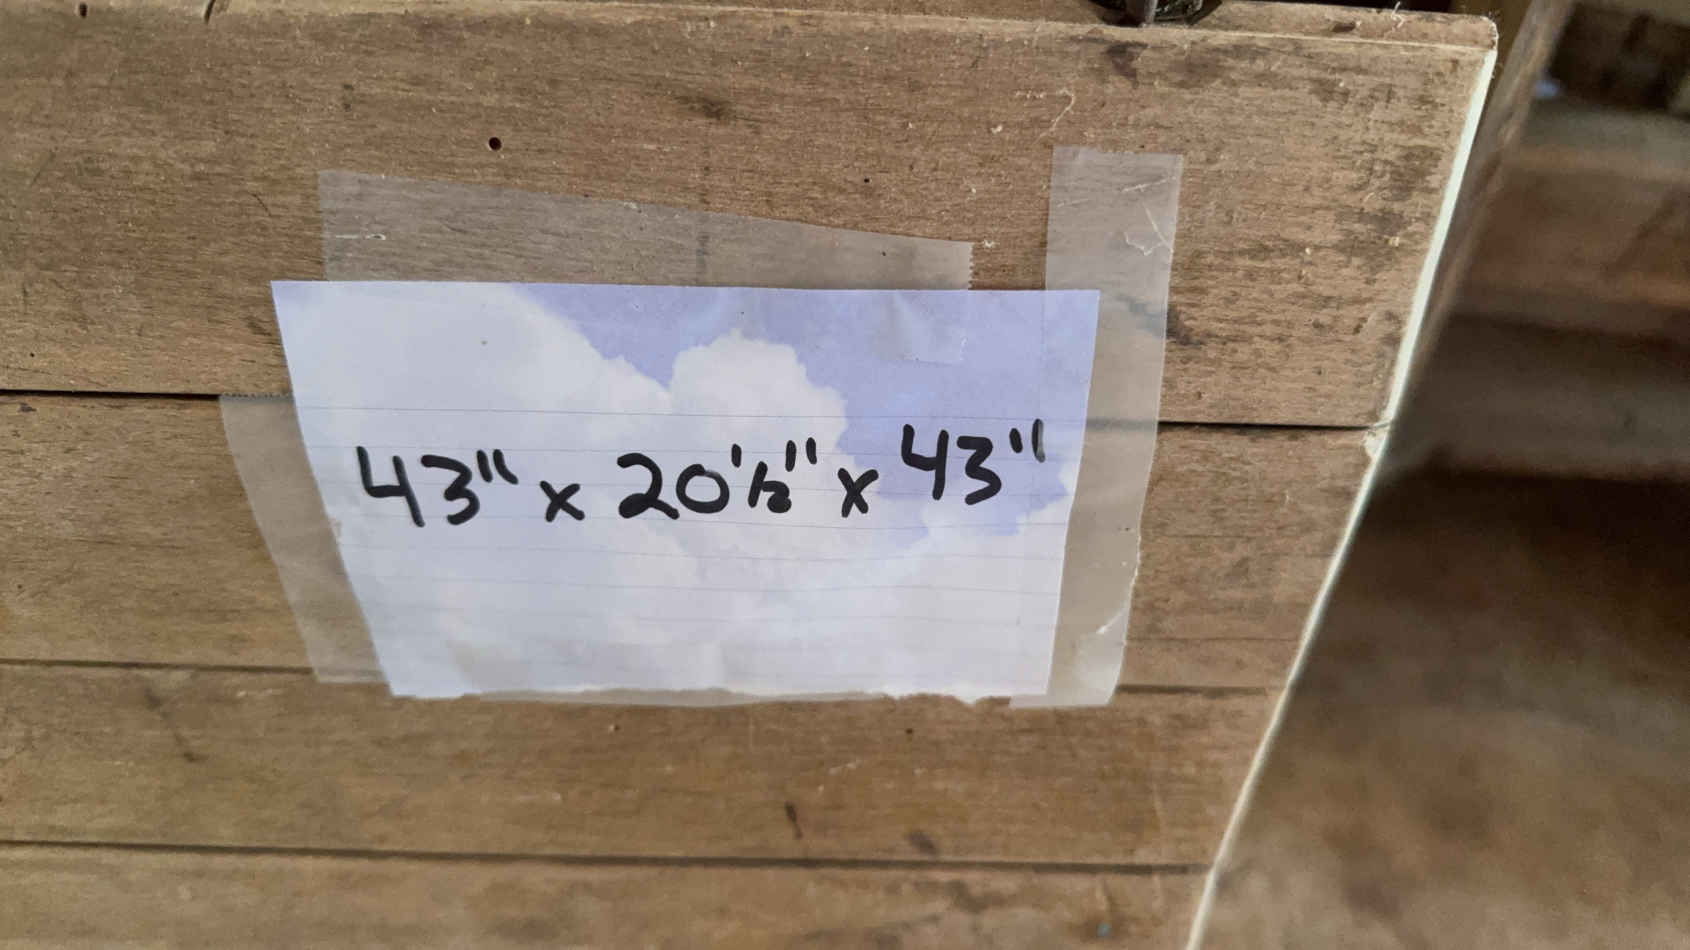 43" x 20 1/2" x 43"